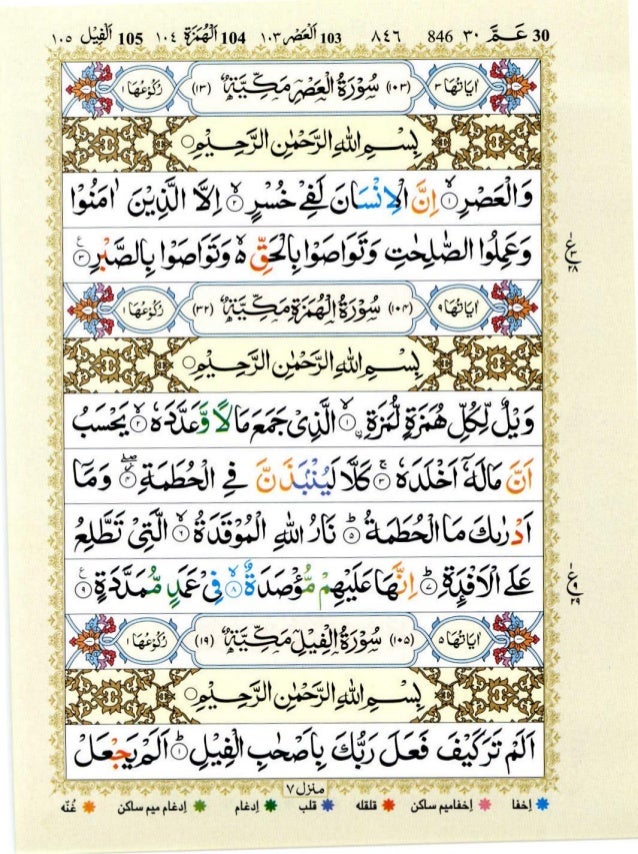 30 عَـمَّ ٣٠ 846 ٨٤٦ 103 اَلْعَصْر ١٠٣ 104 اَلْهُمَزَة ١٠٤ 105 اَلْفِيل ١٠٥
اٰيَاتُهَا ٣ (١٠٣) سُوْرَةُ الْعَصْرِ مَكِّيَّةٌ (١٣) رُكُوْعُهَا ١
بِسْمِ اللهِ الرَّحْمٰنِ الرَّحِيْمِ
وَالْعَصْرِ ۙ‏١ اِنَّ الْاِنْسَانَ لَفِيْ خُسْرٍ ۙ‏٢ اِلَّا الَّذِيْنَ اٰمَنُوْا
وَعَمِلُوا الصّٰلِحٰتِ وَتَوَاصَوْا بِالْحَقِّ ۙ۬ وَتَوَاصَوْا بِالصَّبْرِ ٣
ع ٣ ٢٨
اٰيَاتُهَا ٩ (١٠٤) سُوْرَةُ الْهُمَزَةِ مَكِّيَّةٌ (٣٢) رُكُوْعُهَا ١
بِسْمِ اللهِ الرَّحْمٰنِ الرَّحِيْمِ
وَيْلٌ لِّكُلِّ هُمَزَةٍ لُّمَزَةِ ۙ‏١ الَّذِيْ جَمَعَ مَالًا وَّعَدَّدَهٗ ۙ‏٢ يَحْسَبُ
اَنَّ مَالَهٗۤ اَخْلَدَهٗ ۚ‏٣ كَلَّا لَيُنْۢبَذَنَّ فِي الْحُطَمَةِ ۖ‏٤ وَمَاۤ
اَدْرٰىكَ مَا الْحُطَمَةُ ؕ‏٥ نَارُ اللهِ الْمُوْقَدَةُ ۙ‏٦ الَّتِيْ تَطَّلِعُ
عَلَى الْاَفْـِٕدَةِ ؕ‏٧ اِنَّهَا عَلَيْهِمْ مُّؤْصَدَةٌ ۙ‏٨ فِيْ عَمَدٍ مُّمَدَّدَةٍ ٩
ع ٩ ٢٩
اٰيَاتُهَا ٥ (١٠٥) سُوْرَةُ الْفِيْلِ مَكِّيَّةٌ (١٩) رُكُوْعُهَا ١
بِسْمِ اللهِ الرَّحْمٰنِ الرَّحِيْمِ
اَلَمْ تَرَ كَيْفَ فَعَلَ رَبُّكَ بِاَصْحٰبِ الْفِيْلِ ؕ‏١ اَلَمْ يَجْعَلْ
منزل ٧
اِخفا اِخفامیم ساکن قلقله قلب اِدغام اِدغام میم ساکن غُنّه